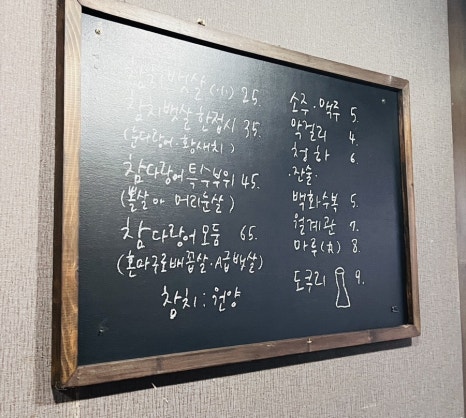 참치뱃살 (小) 25.
참치뱃살 한접시 35.
(눈다랑어·황새치)
참다랑어 특수부위 45.
(뽈살 or 머리윗살)
참다랑어 모듬 65.
(혼마구로배꼽살·A급뱃살)
참치 : 원양
소주·맥주 5.
막걸리 4.
청하 6
·잔술·
백화수복 5.
월계관 7.
마루(大) 8.
도쿠리 9.